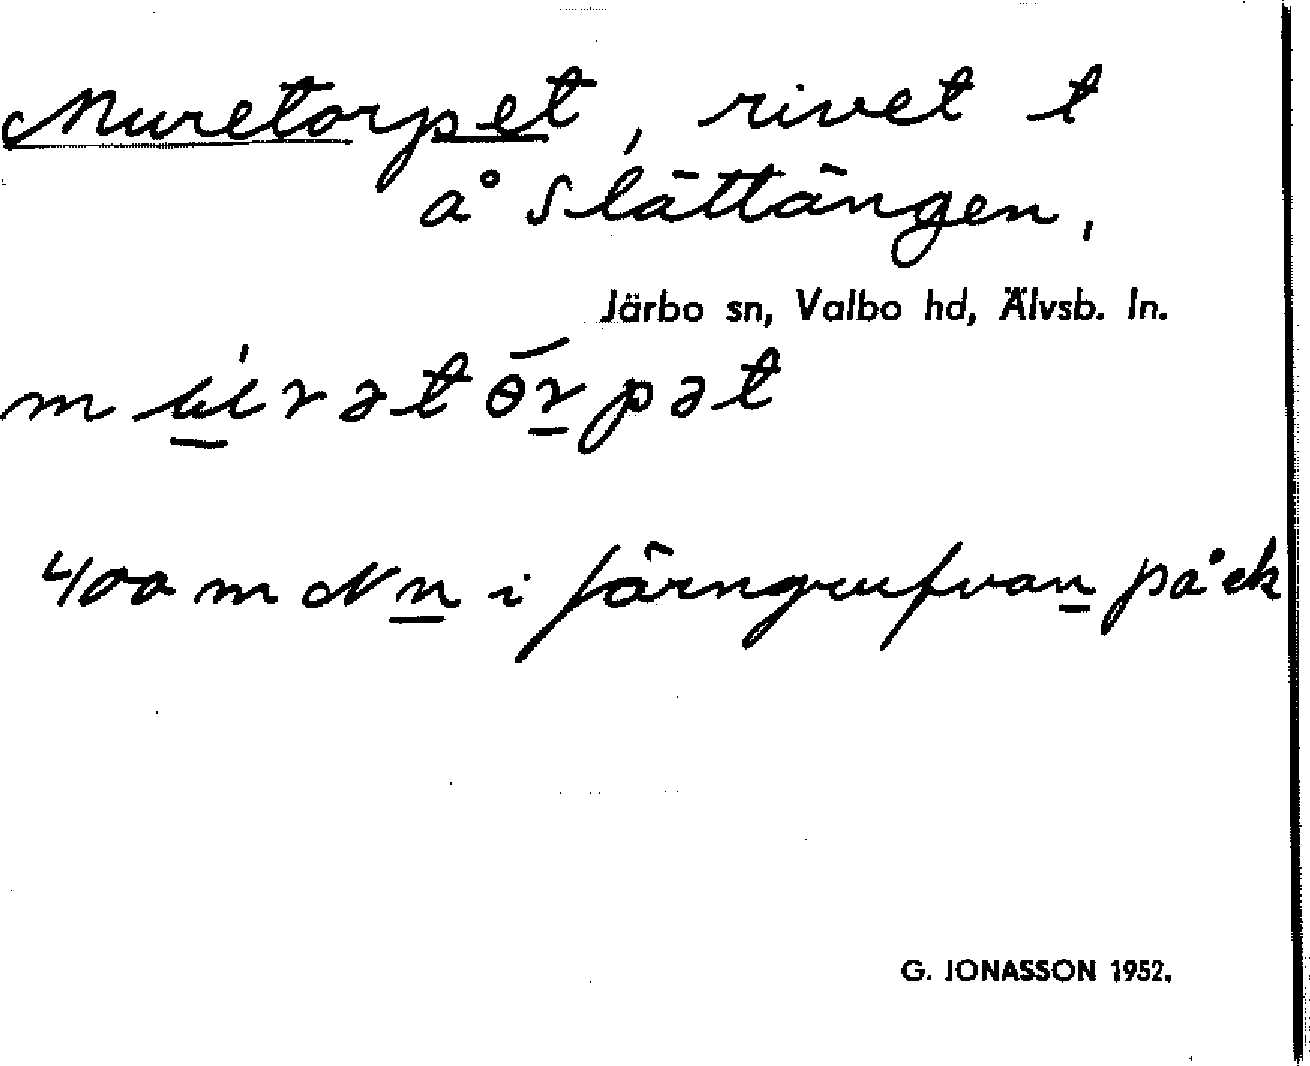 Muretorpet, rivet t
å Slättängen,
Järbo sn, Valbo hd, Älvsb. ln.
400 m N n i Järngrufvan på ek
G. JONASSON 1952.